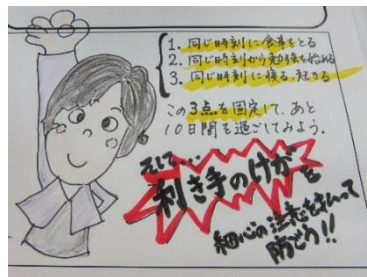 1. 同じ時刻に食事をとる
2. 同じ時刻から勉強を始める
3. 同じ時刻に寝る、起きる
この3点を固定して、あと
10日間を過ごしてみよう。
そして…
利き手のけがを
細心の注意をはらって
防ごう!!